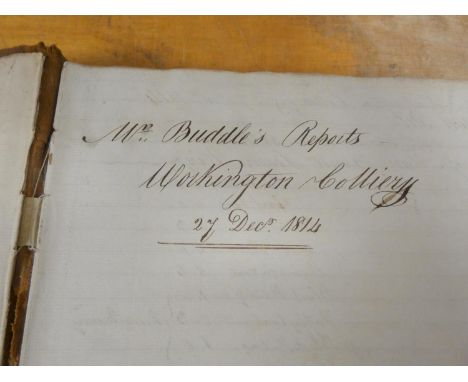 Mr. Buddle's Reports
Workington Colliery
27 Decr. 1814